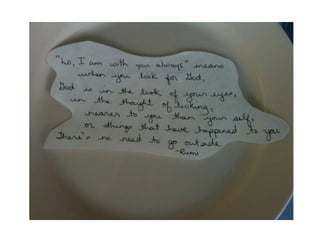 "Lo, I am with you always" means
when you look for God,
God is in the look of your eyes,
in the thought of looking,
nearer to you than your self,
or things that have happened to you
There's no need to go outside
-Rumi